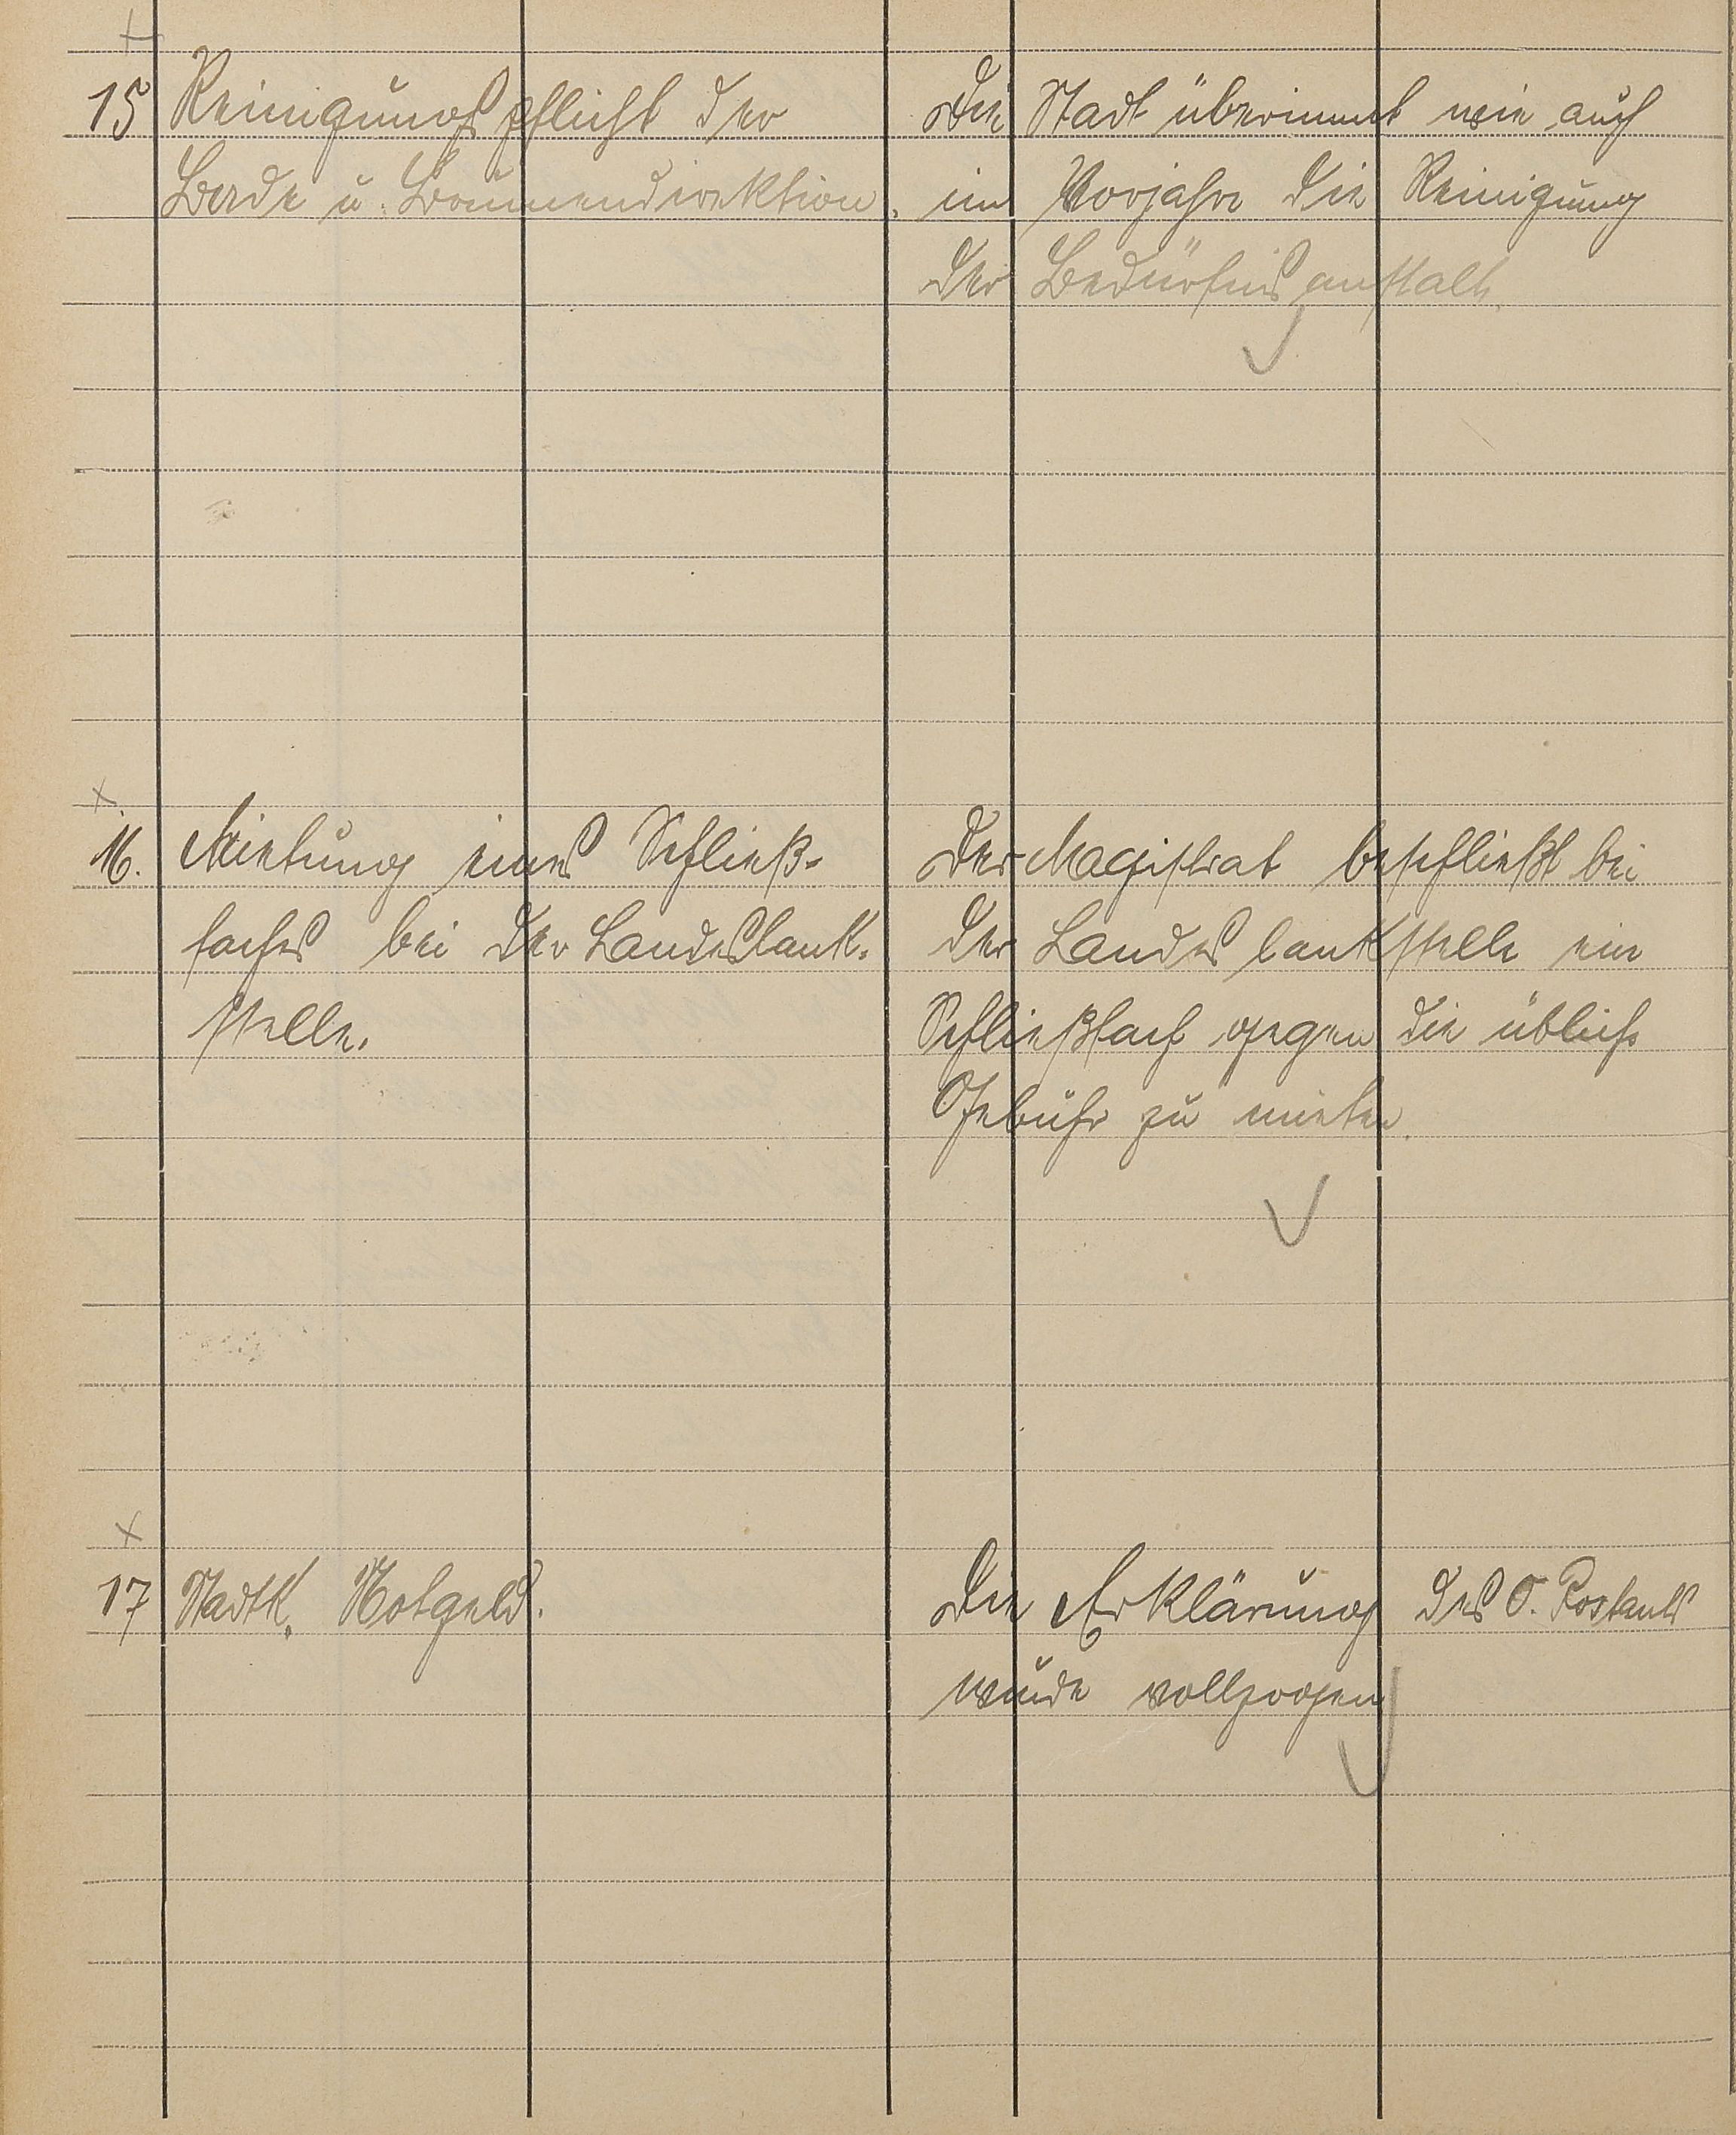 15 Reinigungspflicht der
Bade u. Brunnendirektion.
Die Stadt überimmt wie auch
im Vorjahre die Reinigung
der Bedürfnisanstalt.
16. Mietung eines Schließ-
faches bei der Landesbank-
stelle.
Der Magistrat beschließt bei
der Landesbankstelle ein
Schließfach gegen die übliche
Gebühr zu mieten.
17 Stadtk. Notgeld.
Die Erklärung des O. Postamts
wurde vollzogen